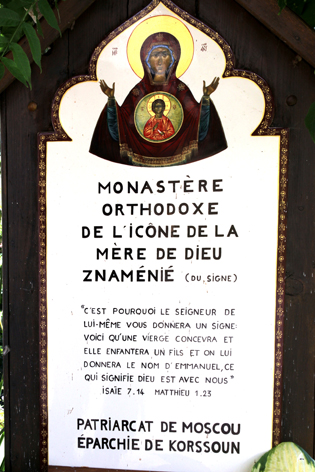 MONASTÈRE
ORTHODOXE
DE L'ICÔNE DE LA
MÈRE DE DIEU
ZNAMÉNIÉ (DU SIGNE)
"C'EST POURQUOI LE SEIGNEUR DE
LUI-MÊME VOUS DONNERA UN SIGNE:
VOICI QU'UNE VIERGE CONCEVRA ET
ELLE ENFANTERA UN FILS ET ON LUI
DONNERA LE NOM D'EMMANUEL, CE
QUI SIGNIFIE DIEU EST AVEC NOUS"
ISAÏE 7.14 MATTHIEU 1.23
PATRIARCAT DE MOSCOU
ÉPARCHIE DE KORSSOUN